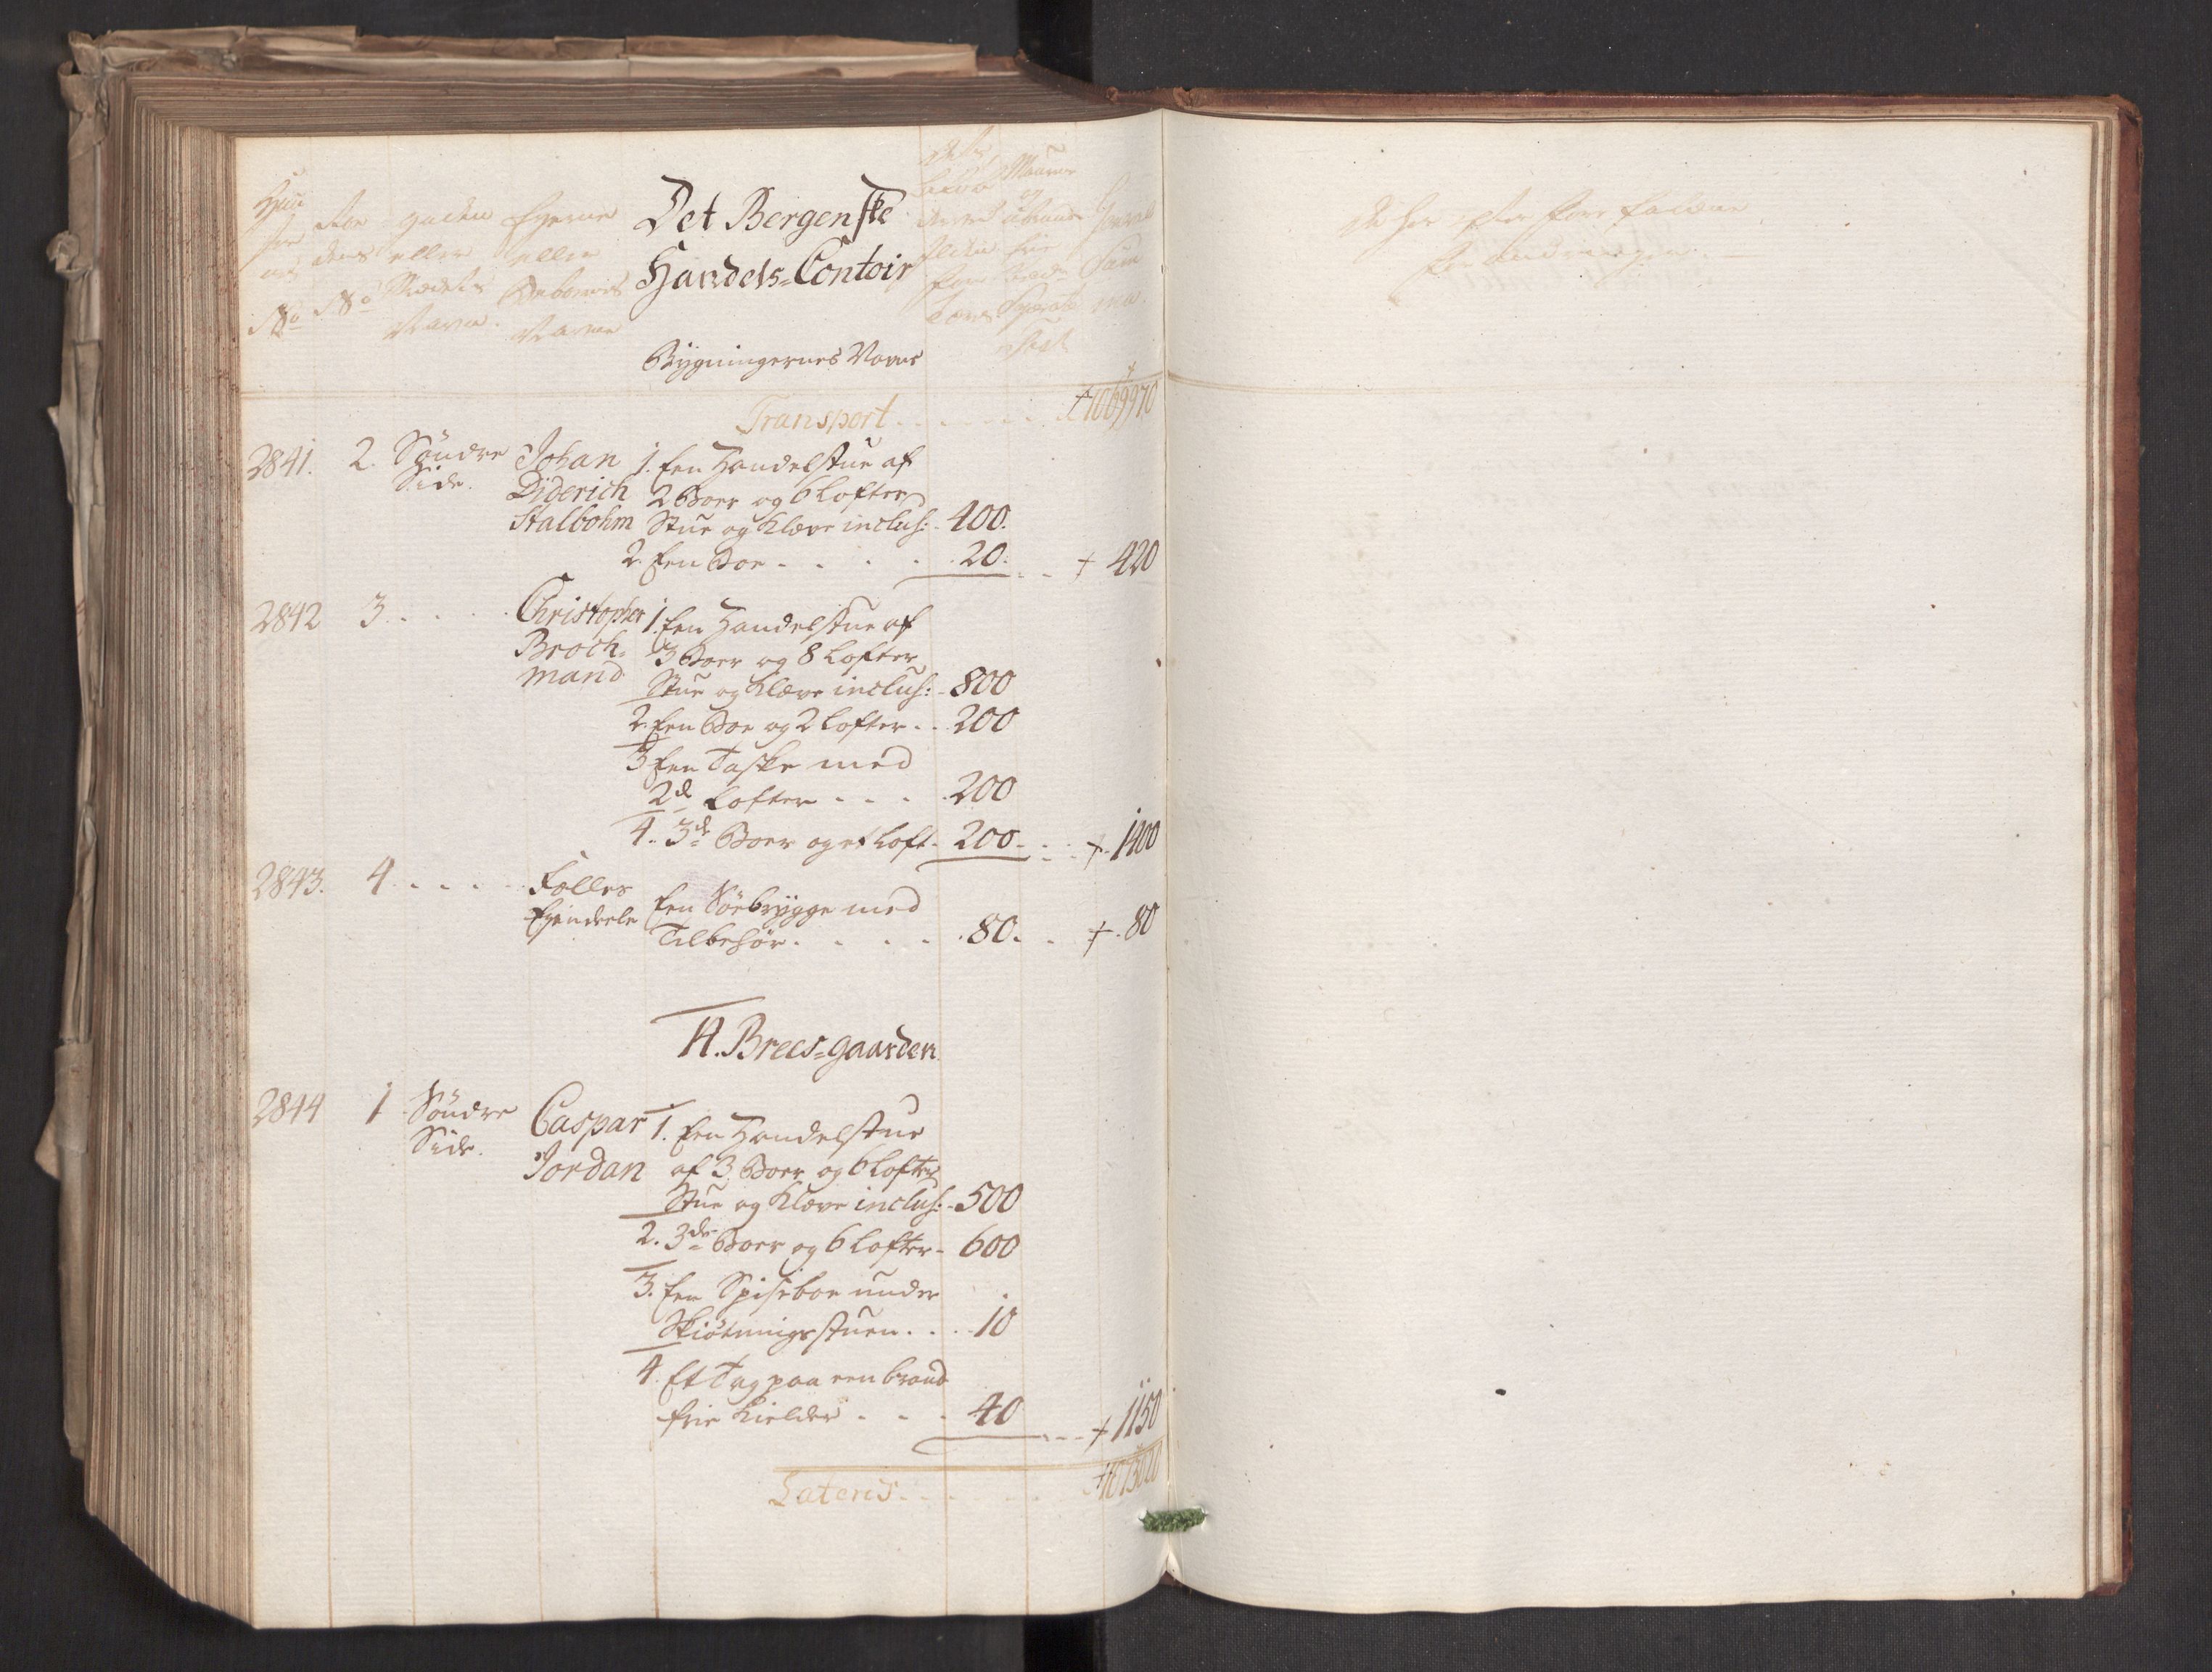 Det Bergenske
Handels=Contoir
gaden eller Stædets Navn.
Eyerne eller Beboernes Navne
Bygningernes Navne
Transport . . . . . 1069970
2841. 2. Söndre Side. Johan Diderich Stalbohm
1. Een Handelstue af
2 Boer og 6 Lofter
Stue og Klæve inclus: - 400.
2. Een Boe - - - - 20. - - + 420
2842 3. . . . Christopher Brochmand
1. Een Handelstue af
3 Boer og 8 Lofter
Stue og Klæve inclus: - 800
2. Een Boe og 2 Lofter - - 200
3 Een Taske med
2de Lofter - - - 200
4. 3de Boer og et Loft - 200 - - - + 1400
2843. 4 . . . . Fælles Eyendeele
Een Söebrygge med
Tilbehör. - - - - 80. - + 80
H. Brees=gaarden
2844 1 Söndre Side. Caspar Jordan
1. Een Handelstue
af 3 Boer og 6 Lofter
Stue og Klæve inclus: - 500
2. 3de Boer og 6 Lofter - 600
3. Een Spiseboe under
Skiötningsstuen. . . 10
4. Et Tag paa een brand
frie Kielder - - - 40 - - - + 1150
Lateris. . . . . 1073020